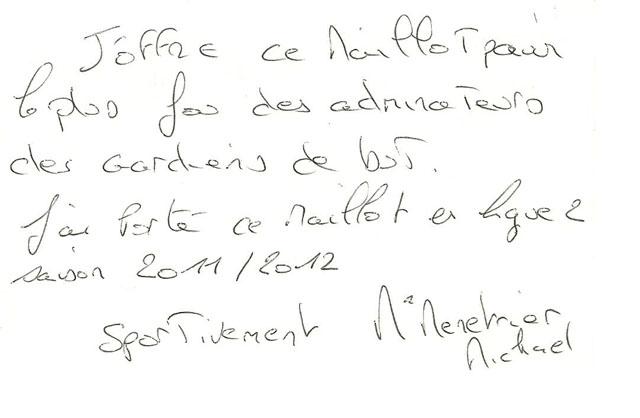 J'offre ce Maillot pour
le plus fou des admirateurs
des Gardiens de but.
J'ai Porté ce Maillot en ligue 2
saison 2011/2012
Sportivement Mr Menetrier
Michael